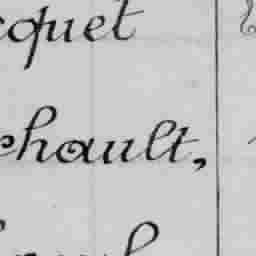 cquet
chault,